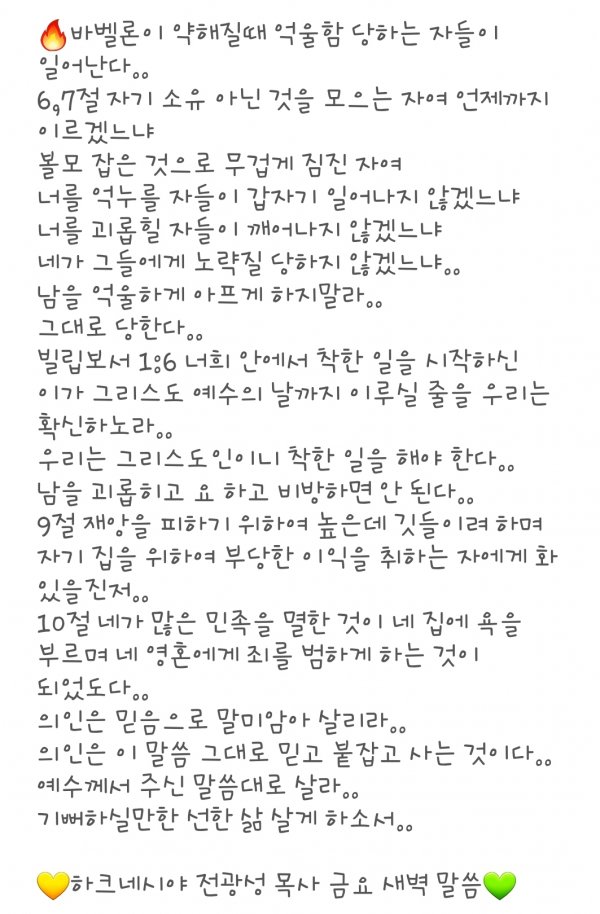 🔥바벨론이 약해질때 억울함 당하는 자들이
일어난다..
6,7절 자기 소유 아닌 것을 모으는 자여 언제까지
이르겠느냐
볼모 잡은 것으로 무겁게 짐진 자여
너를 억누를 자들이 갑자기 일어나지 않겠느냐
너를 괴롭힐 자들이 깨어나지 않겠느냐
네가 그들에게 노략질 당하지 않겠느냐..
남을 억울하게 아프게 하지말라..
그대로 당한다..
빌립보서 1:6 너희 안에서 착한 일을 시작하신
이가 그리스도 예수의 날까지 이루실 줄을 우리는
확신하노라..
우리는 그리스도인이니 착한 일을 해야 한다..
남을 괴롭히고 요 하고 비방하면 안 된다..
9절 재앙을 피하기 위하여 높은데 깃들이려 하며
자기 집을 위하여 부당한 이익을 취하는 자에게 화
있을진저..
10절 네가 많은 민족을 멸한 것이 네 집에 욕을
부르며 네 영혼에게 죄를 범하게 하는 것이
되었도다..
의인은 믿음으로 말미암아 살리라..
의인은 이 말씀 그대로 믿고 붙잡고 사는 것이다..
예수께서 주신 말씀대로 살라..
기뻐하실만한 선한 삶 살게 하소서..
💛하크네시야 전광성 목사 금요 새벽 말씀💚